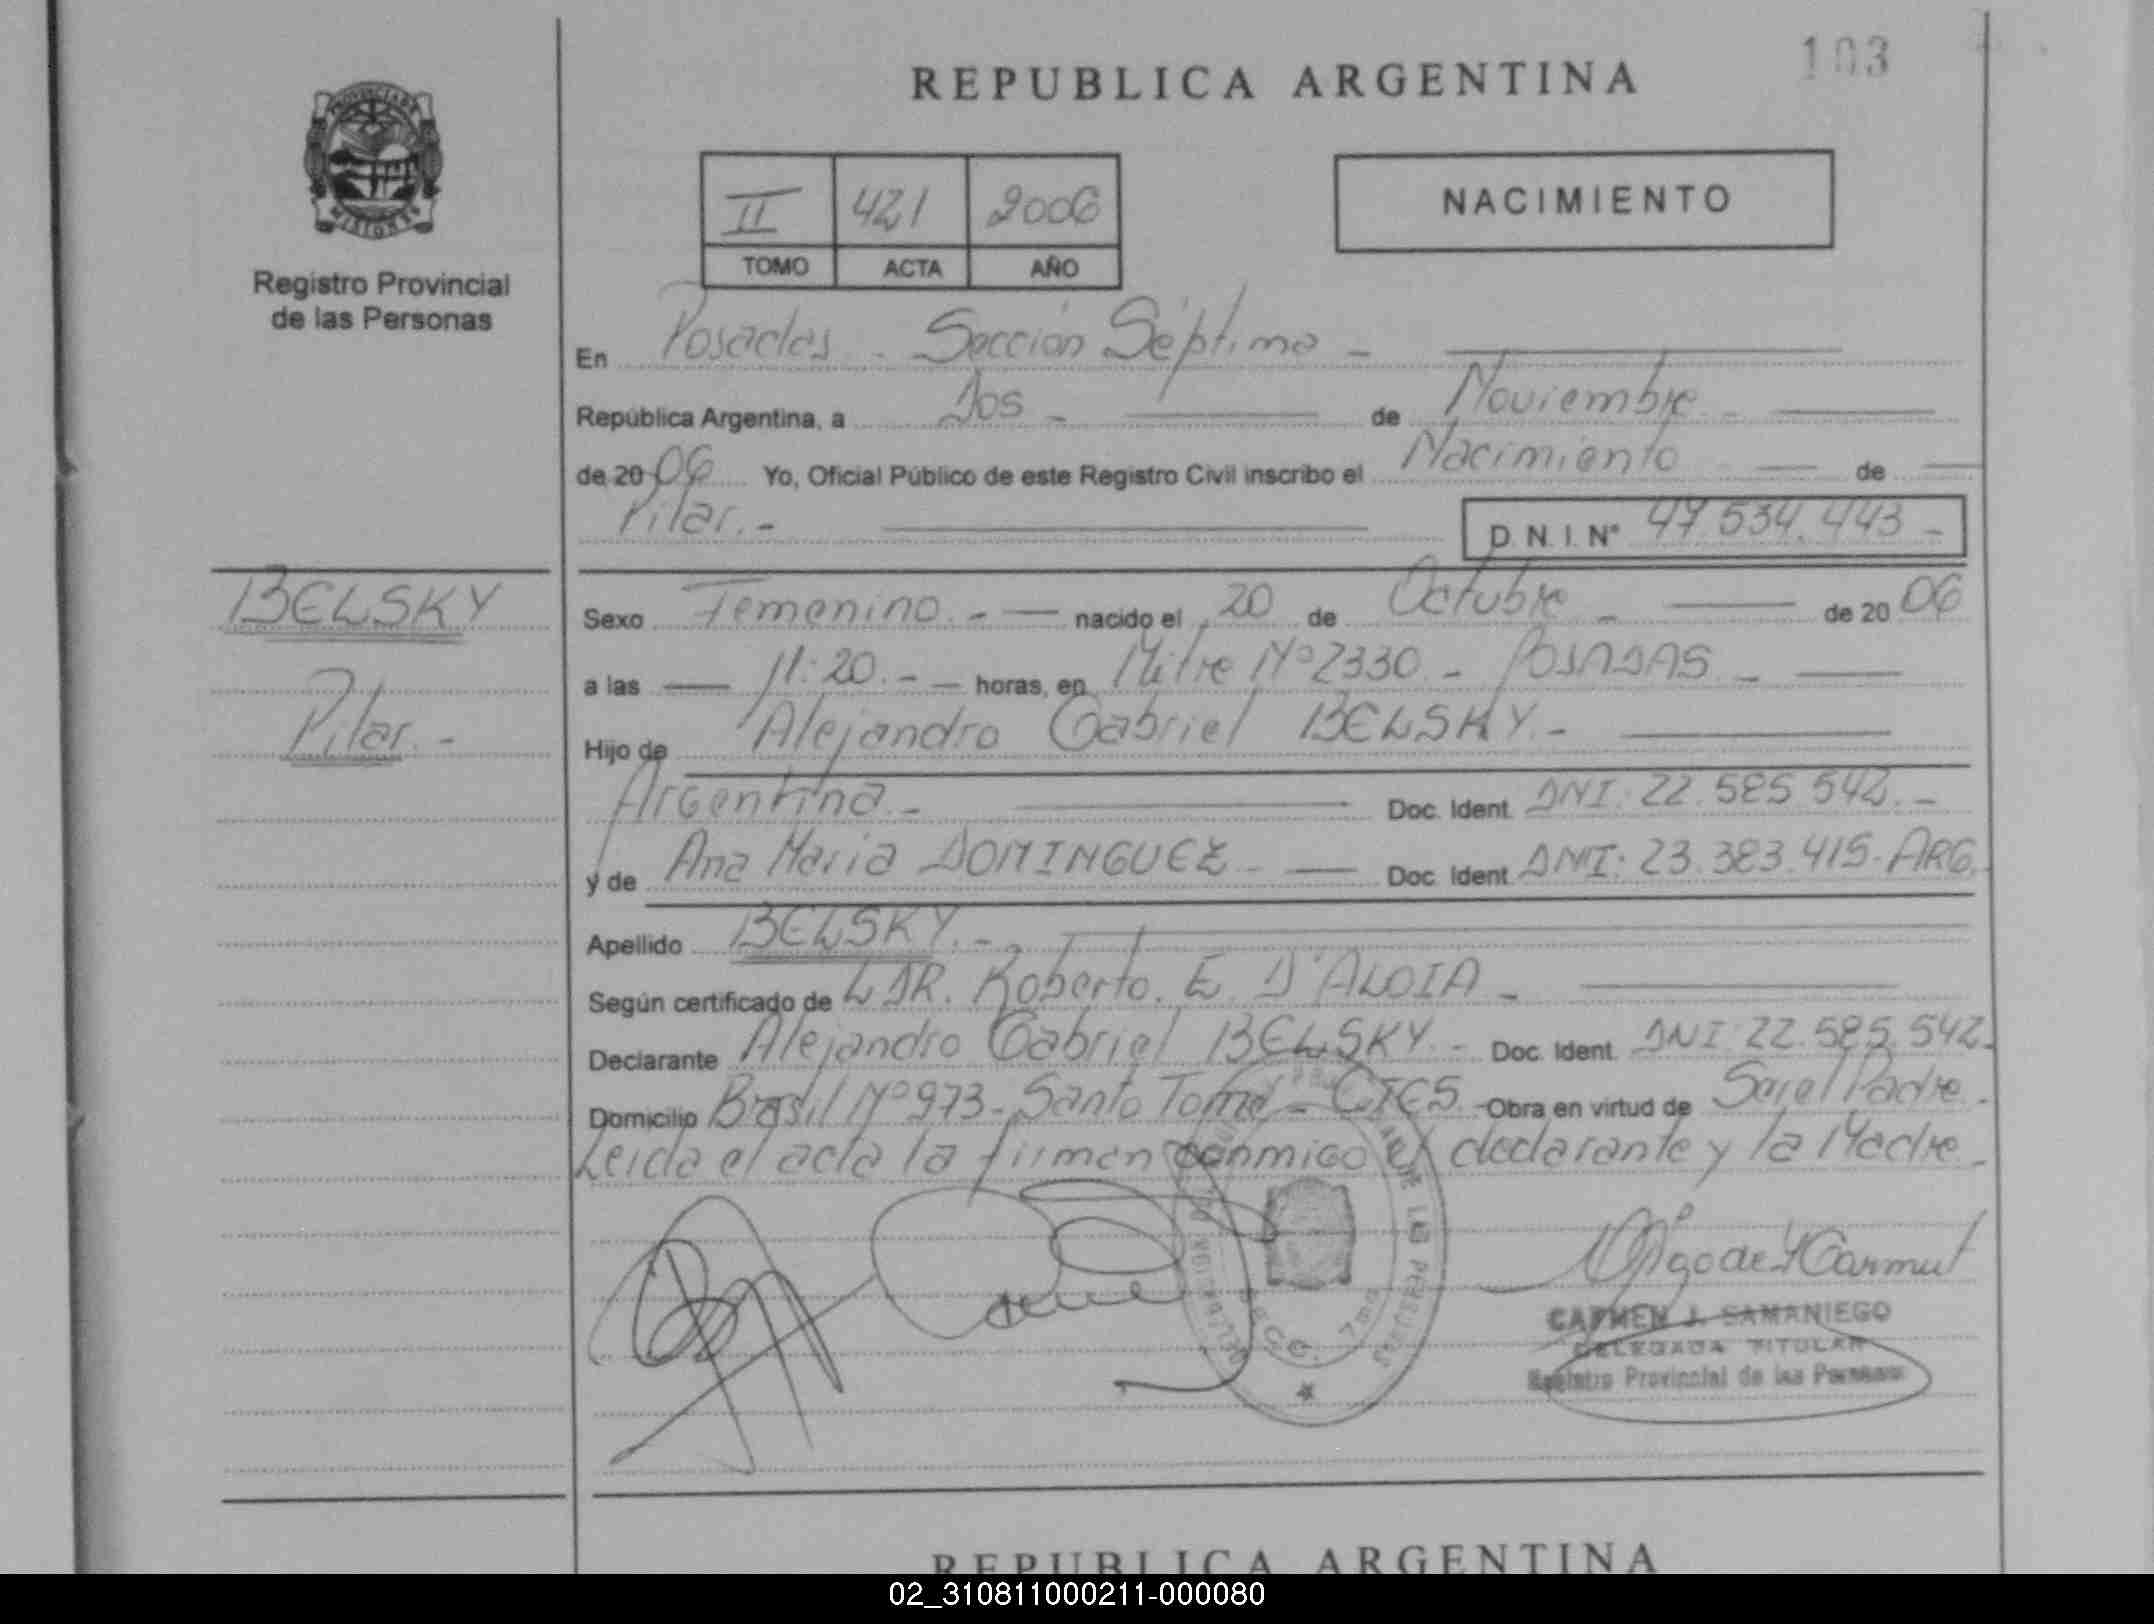 103
REPUBLICA ARGENTINA
PROVINCIA DE
MISIONES
Registro Provincial
de las Personas
II 421 2006
TOMO ACTA AÑO
NACIMIENTO
En Posadas - Sección Séptima -
República Argentina, a Dos - de Noviembre -
de 2006 Yo, Oficial Público de este Registro Civil inscribo el Nacimiento de
Pilar. -
D. N. I. N° 47.534.443 -
BELSKY
Pilar. -
Sexo Femenino. - nacido el 20 de Octubre - de 20 06
a las 11:20. - horas, en Mitre Nº 2330 - POSADAS -
Hijo de Alejandro Gabriel BELSKY. -
Argentina - Doc. Ident. DNI: 22.585.542. -
y de Ana Maria DOMINGUEZ - Doc. Ident. DNI: 23.383.415 - ARG.
Apellido BELSKY. -
Según certificado de L DR. Roberto. E. D'ALOIA -
Declarante Alejandro Gabriel BELSKY. - Doc. Ident. DNI: 22.585.542.
Domicilio Brasil Nº 973 - Santo Tomé - CTES - Obra en virtud de Ser el Padre -
Leída el acta la firman conmigo el declarante y la Madre -
DE LAS PERSONAS
Secc. 7ma
CARMEN J. SAMANIEGO
DELEGADA TITULAR
Registro Provincial de las Personas
REPUBLICA ARGENTINA
02_310811000211-000080